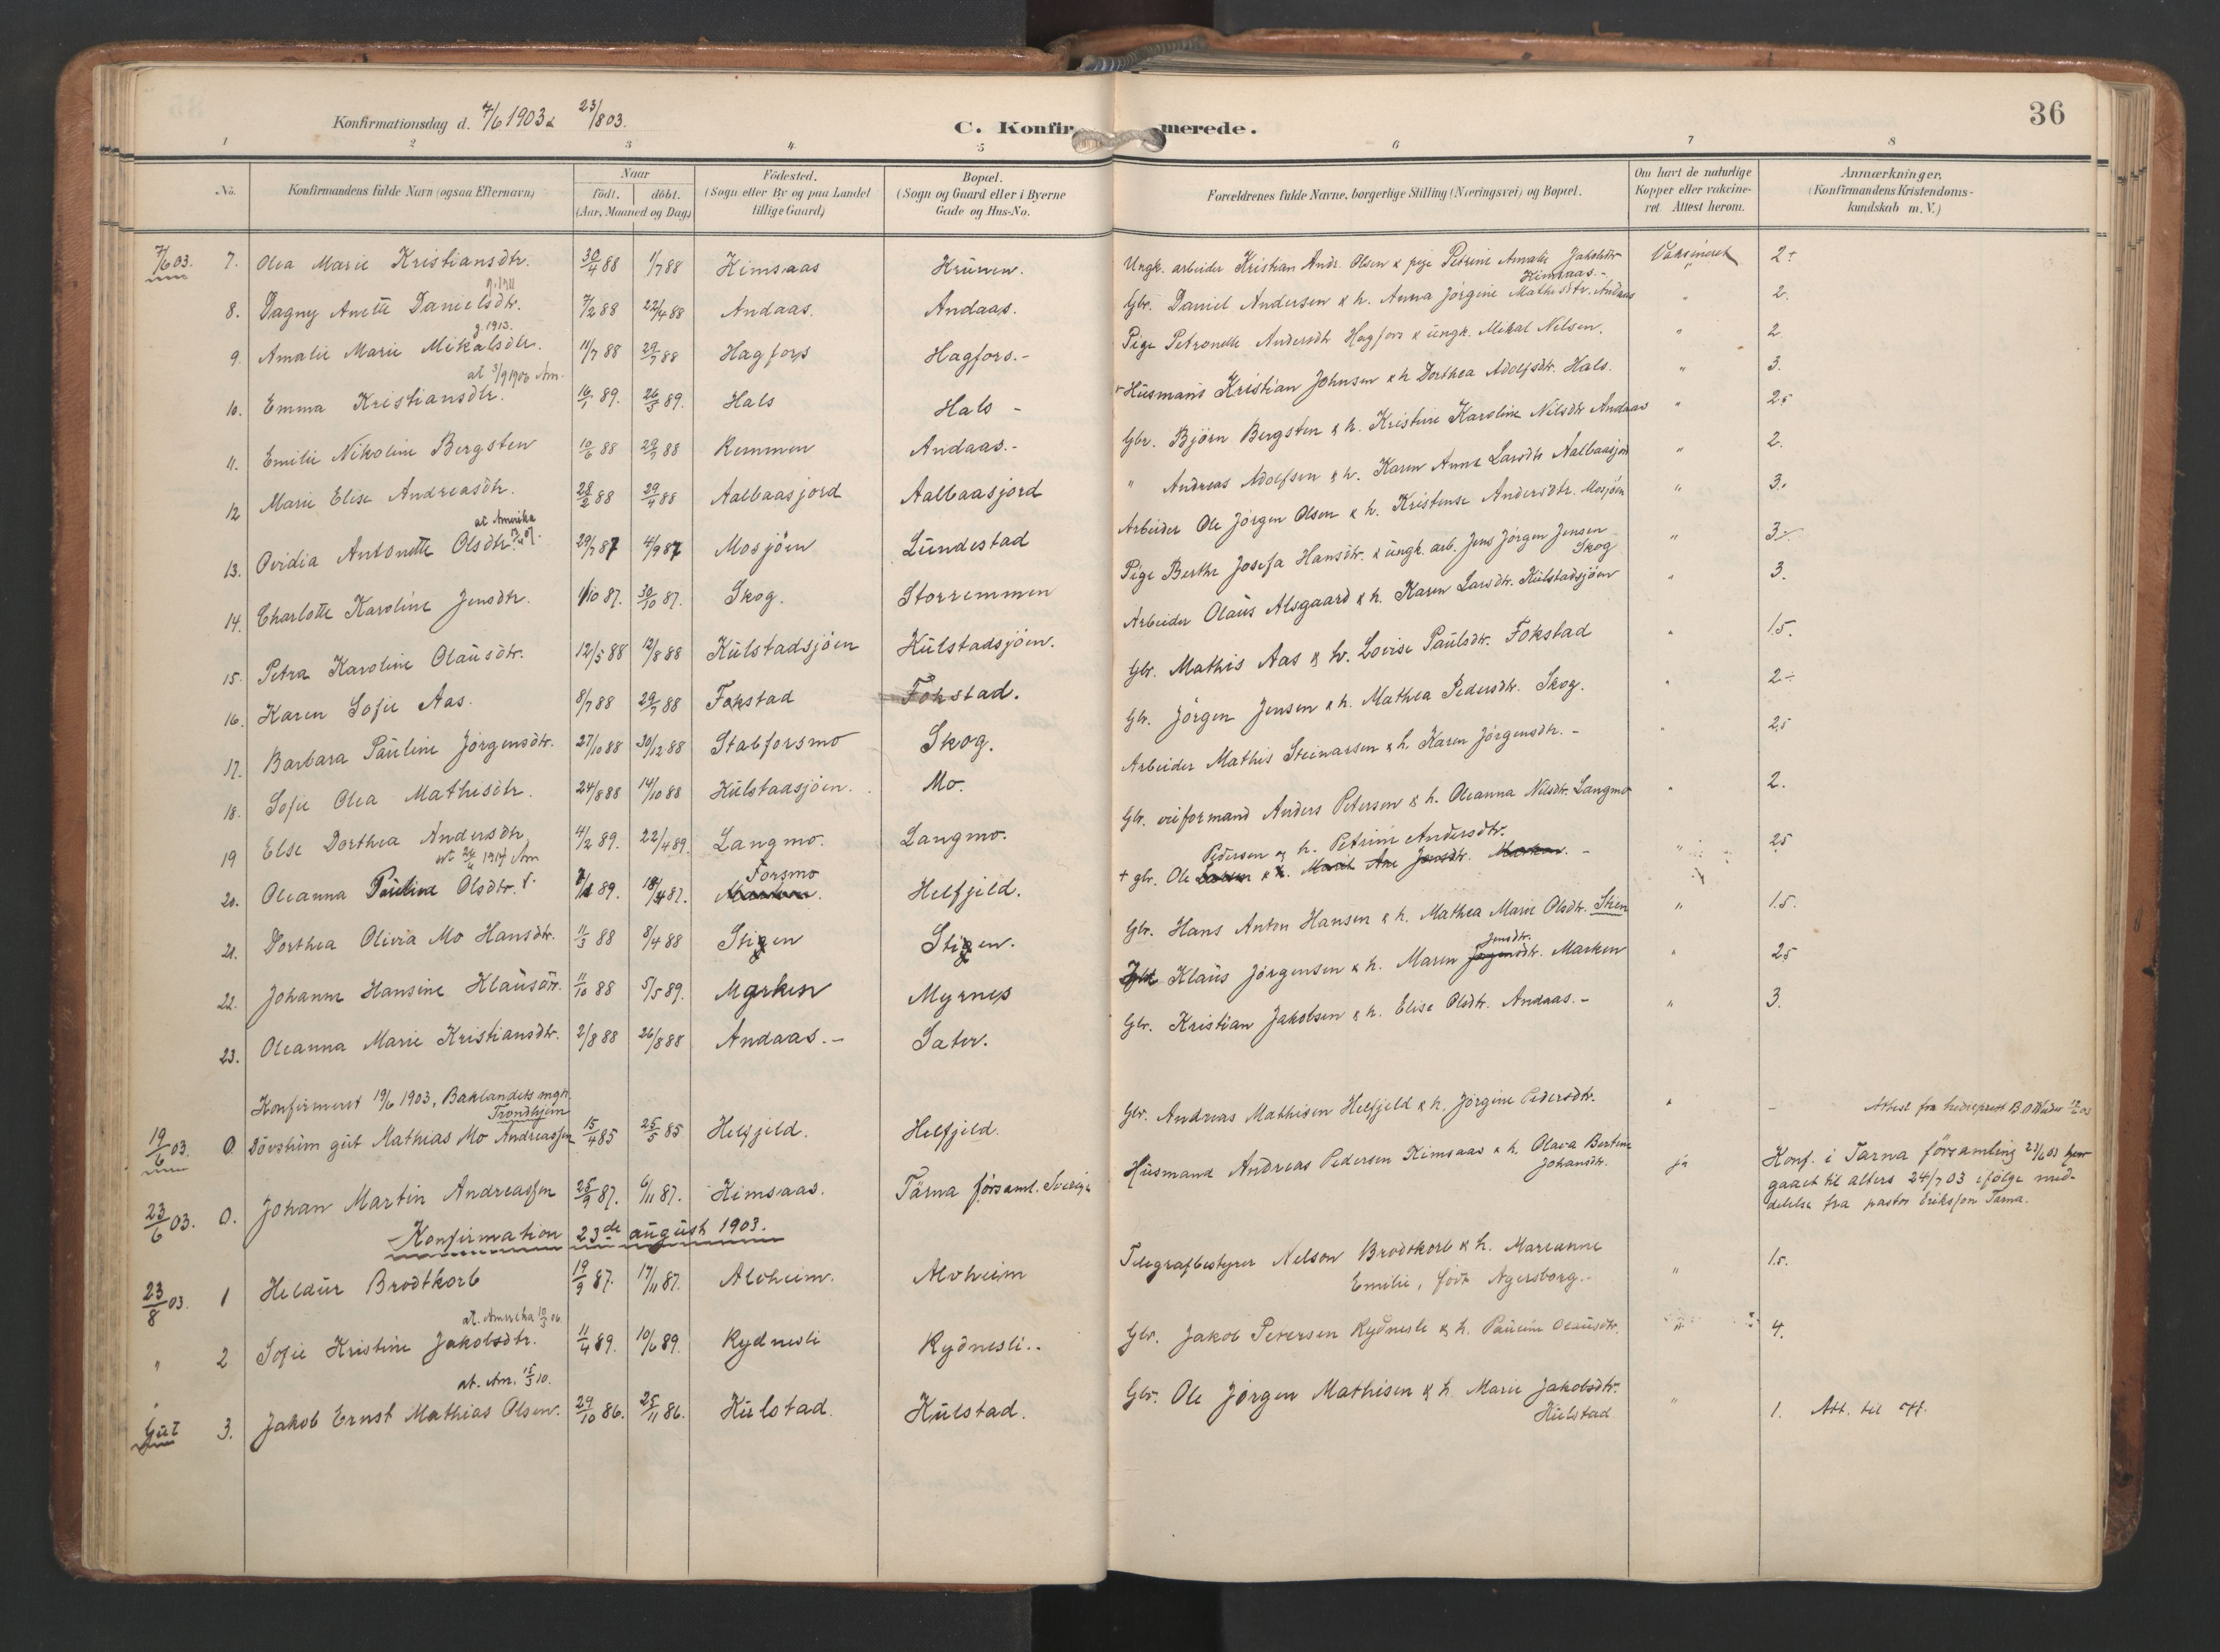 Konfirmationsdag d. 7/6 1903 & 23/8 03.
C. Konfirmerede.
36
1 2 3 4 5 6 7 8
No. Konfirmandens fulde Navn (ogsaa Efternavn) Naar födt. döbt. (Aar, Maaned og Dag) Födested. (Sogn eller By og paa Landet tillige Gaard) Bopæl. (Sogn og Gaard eller i Byerne Gade og Hus-No. Forældrenes fulde Navne, borgerlige Stilling (Næringsvei) og Bopæl. Om havt de naturlige Kopper eller vakcineret Attest herom. Anmærkninger. (Konfirmandens Kristendomskundskab m. V.)
7/6 03. 7. Olea Marie Kristiansdtr. 30/4 88 1/7 88 Kimsaas Krünen. Ungk. arbeider Kristian Andr. Olsen & pige Petrine Amalie Jakobsdtr. Kimsaas.- Vaksineret 2+
8. Dagny Anette Danielsdtr. 7/2 88 22/4 88 Andaas. Andaas. Gbr. Daniel Andersen & h. Anna Jörgine Mathisdtr. Andaas " 2.
g. 1913.
9. Amalie Marie Mikalsdtr. 11/7 88 29/7 88 Hagfors Hagfors.- Pige Petronelle Andersdtr Hagfors & üngk. Mikal Nelsen. " 2
at 3/9 1903 Am.
10. Emma Kristiansdtr. 16/1 89. 26/5 89. Hals Hals - Hüsmans Kristian Johnsen & h Dorthea Adolfsdtr. Hals. " 3.
11. Emilie Nikoline Bergsten 10/6 88 29/7 88 Remmen Andaas.- Gbr. Björn Bergsten & h. Kristine Karoline Nilsdtr Andaas " 2.5
12 Marie Elise Andreasdtr. 28/2 88 29/4 88 Aalbaasjord Aalbaasjord " Andreas Adolfsen & h. Karen Anna Larsdtr Aalbaasjord " 2.
at Amerika
13. Ovidia Antonette Olsdtr. 29/7 87 4/9 87 Mosjöen Lündestad Arbeider Ole Jörgen Olsen & h. Kristense Andersdtr. Mosjöen " 3.
14. Charlotte Karoline Jensdtr. 1/10 87. 30/10 87. Skog. Storremmen Pige Berthe Josefa Hansdtr. & üngk. arb. Jens Jörgen Jensen Skog " 3
15. Petra Karoline Olaüsdtr. 12/5 88 12/8 88 Külstadsjöen Külstadsjöen. Arbeider Olaüs Alsgaard & h. Karen Larsdtr. Külstadsjöen " 3.
16. Karen Sofie Aas. 8/7 88 29/7 88 Fokstad Fokstad. Gbr. Mathis Aas & h. Lovise Paülsdtr. Fokstad " 1.5.
17. Barbara Paüline Jörgensdtr. 27/10 88 30/12 88 Stabforsmo Skog. Gbr. Jörgen Jensen & h. Mathea Pedersdtr. Skog. " 2÷
18. Sofie Olea Mathisdtr. 24/8 88 14/10 88 Külstadsjöen. Mo. Arbeider Mathis Steinarsen & h. Karen Jörgensdtr. - " 2.5
19 Else Dorthea Andersdtr 4/2 89. 22/4 89. Langmo. Langmo. Gbr. veiformand Anders Petersen & h. Oleanna Nilsdtr. Langmo " 2.
Pedersen og h. Petrine Andersdtr.
20. Oleanna Paüline Olsdtr. 89. 87. Forsmo Helfjeld. + gbr. Ole " 2.5
21. Dorthea Olivia Mo Hansdtr. 11/3 88 8/4 88 Stien Stien. Gbr. Hans Anton Hansen & h. Mathea Marie Olsdtr. Stien " 1.5.
22. Johanne Hansine Klaüsdtr. 11/10 88 5/5 89. Marken Myrnes Klaüs Jörgensen & h. Maren Jensdtr. Marken " 2.5
23. Oleanna Marie Kristiansdtr. 2/8 88 26/8 88 Andaas.- Sater. Gbr. Kristian Jakobsen & h. Elise Olsdtr. Andaas.- " 3.
Konfirmeret 19/6 1903, Baklandets mgh. Trondhjem
19/6 03. 0. Dövstüm güt Mathias Mo Andreassen 15/4 85 25/5 85 Helfjeld. Helfjeld. Gbr. Andreas Mathisen Helfjeld & h. Jörgine Pedersdtr. " - Attest fra
23/6 03. 0. Johan Martin Andreassen 25/9 87. 6/11 87. Kimsaas. Tärna församl. Sverige Hüsmand Andreas Pedersen Kimsaas & h. Olava Bertine Johansdtr. ja Konf. i Tarna församling 23/6 03
gaaet til alters 24/7 03 ifölge med-
delelse fra pastor Eriksson Tarna.
Konfirmation 23de aügüst 1903.
23/8 03. 1 Heldür Brodtkorb 19/9 87. 17/11 87. Alvheim. Alvheim Telegrafbestyrer Nelson Brodtkorb & h. Marianne Emilie, född Agersborg.- " 1.5.
at. Amerika
" 2 Sofie Kristine Jakobsdtr. 11/4 89. 10/6 89. Rydnesli Rydnesli.. Gbr. Jakob Petersen Rydnesli & h. Pauline Olaüsdtr. " 4.
at. Am. 15/3 10.
Güt 3. Jakob Ernst Mathias Olsen. 29/10 86. 25/11 86. Külstad. Külstad. Gbr. Ole Jörgen Mathisen & h. Marie Jakobsdtr. Külstad " 1. Att. til